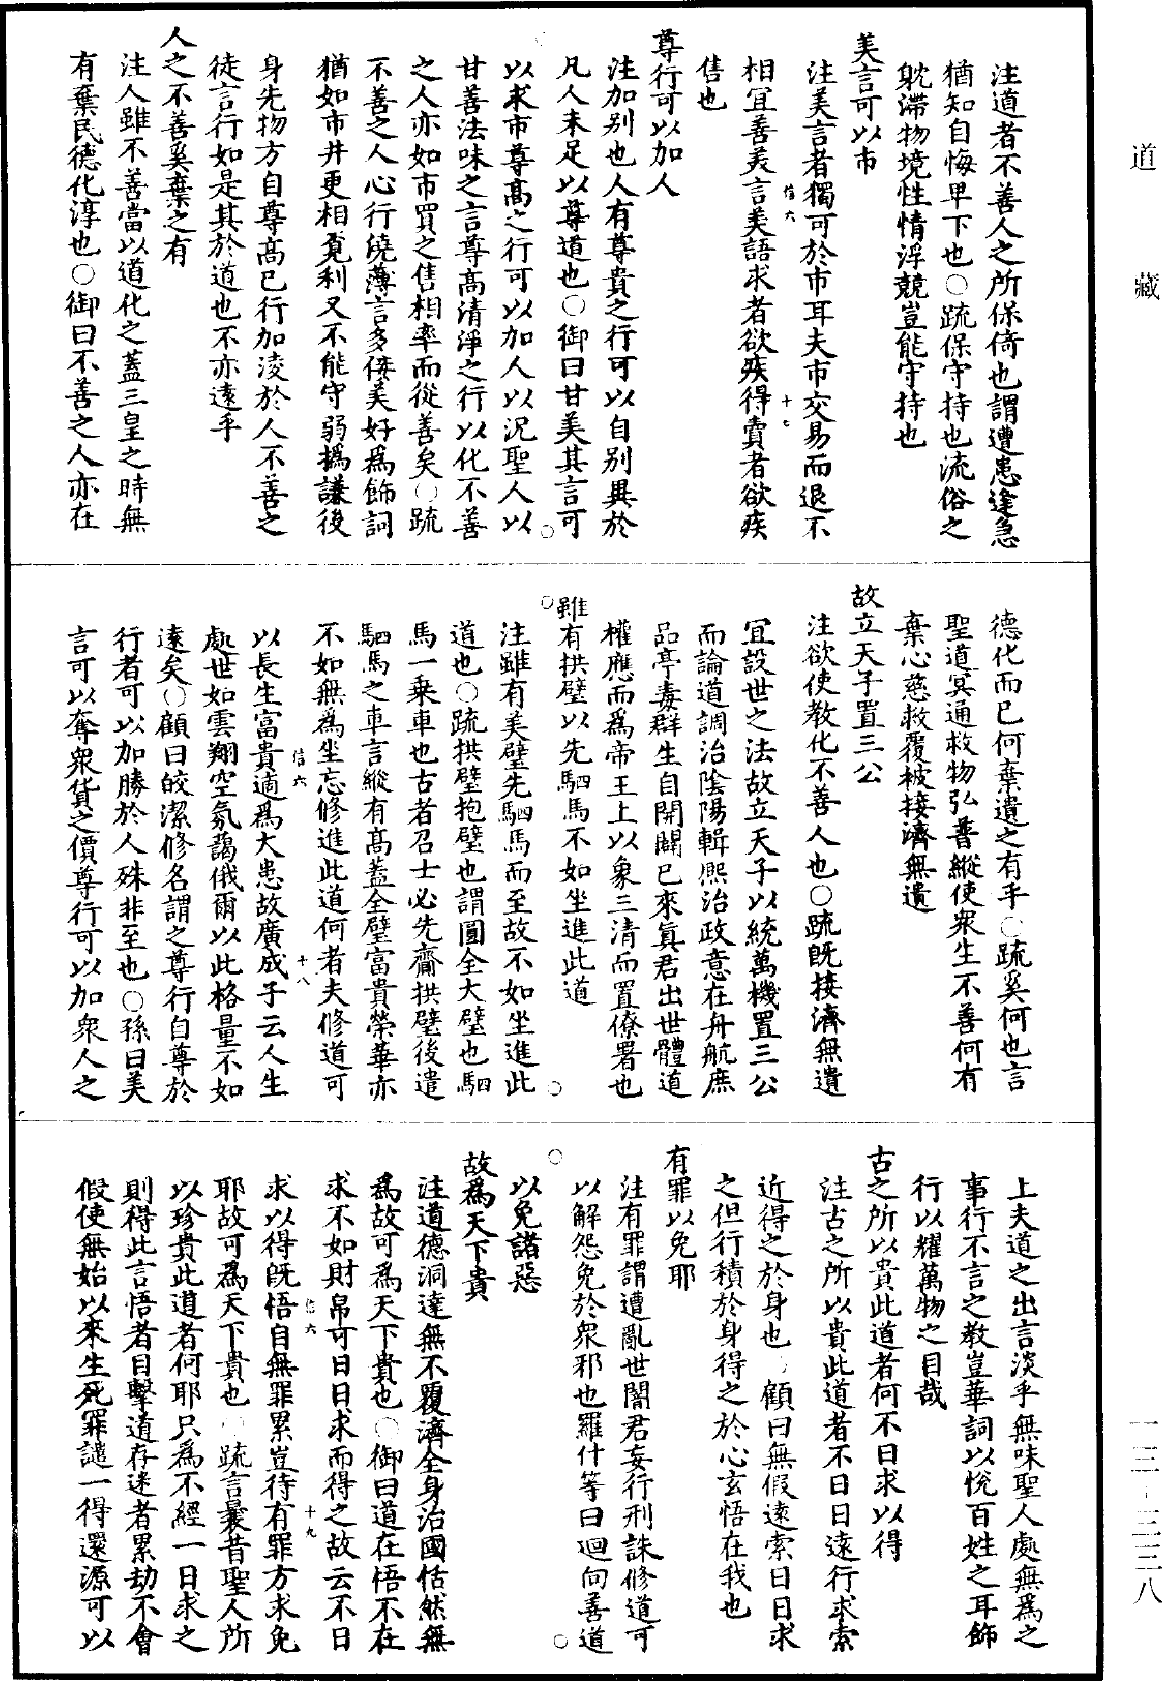 道藏
一三-三三八
注道者不善人之所保倚也謂遭患逢急
猶知自悔早下也〇疏保守持也流俗之
躭滯物境性情浮競豈能守持也
美言可以市
注美言者獨可於市耳夫市交易而退不
相宜善美言美語求者欲疾得賣者欲疾
售也
尊行可以加人
注加别也人有尊貴之行可以自别異於
凡人未足以尊道也〇御曰甘美其言可
以求市尊高之行可以加人以況聖人以
甘善法味之言尊高清淨之行以化不善
之人亦如市買之售相率而從善矣〇疏
不善之人心行澆薄言多侫美好爲飾詞
猶如市井更相覔利又不能守弱撝謙後
身先物方自尊高已行加淩於人不善之
徒言行如是其於道也不亦遠乎
人之不善奚棄之有
注人雖不善當以道化之蓋三皇之時無
有棄民德化淳也〇御曰不善之人亦在
信六
十七
德化而已何棄遺之有乎〇疏奚何也言
聖道冥通救物弘普縱使衆生不善何有
棄心慈救覆被接濟無遺
故立天子置三公
注欲使教化不善人也〇疏既接濟無遺
宜設世之法故立天子以統萬機置三公
而論道調治陰陽輯熈治政意在舟航庶
品亭毒群生自開闢已來真君出世體道
權應而爲帝王上以象三清而置僚署也
雖有拱璧以先駟馬不如坐進此道
注雖有美璧先駟馬而至故不如坐進此
道也〇疏拱璧抱璧也謂圓全大璧也駟
馬一乗車也古者召士必先齎拱璧後遣
駟馬之車言縱有高蓋全璧富貴榮華亦
不如無爲坐忘修進此道何者夫修道可
以長生富貴適爲大患故廣成子云人生
處世如雲翔空氛藹俄爾以此格量不如
遠矣〇顧曰皎潔修名謂之尊行自尊於
行者可以加勝於人殊非至也〇孫曰美
言可以奪衆貨之價尊行可以加衆人之
信六
十八
上夫道之出言淡乎無味聖人處無爲之
事行不言之教豈華詞以悅百姓之耳飾
行以耀萬物之目哉
古之所以貴此道者何不日求以得
注古之所以貴此道者不日日遠行求索
近得之於身也〇顧曰無假遠索日日求
之但行積於身得之於心玄悟在我也
有罪以免耶
注有罪謂遭亂世闇君妄行刑誅修道可
以解怨免於衆邪也羅什等曰迴向善道
以免諸惡
故爲天下貴
注道德洞達無不覆濟全身治國恬然無
爲故可爲天下貴也〇御曰道在悟不在
求不如財帛可日日求而得之故云不日
求以得既悟自無罪累豈待有罪方求免
耶故可爲天下貴也〇疏言曩昔聖人所
以珍貴此道者何耶只爲不經一日求之
則得此言悟者目擊道存迷者累劫不會
假使無始以來生死罪譴一得還源可以
信六
十九